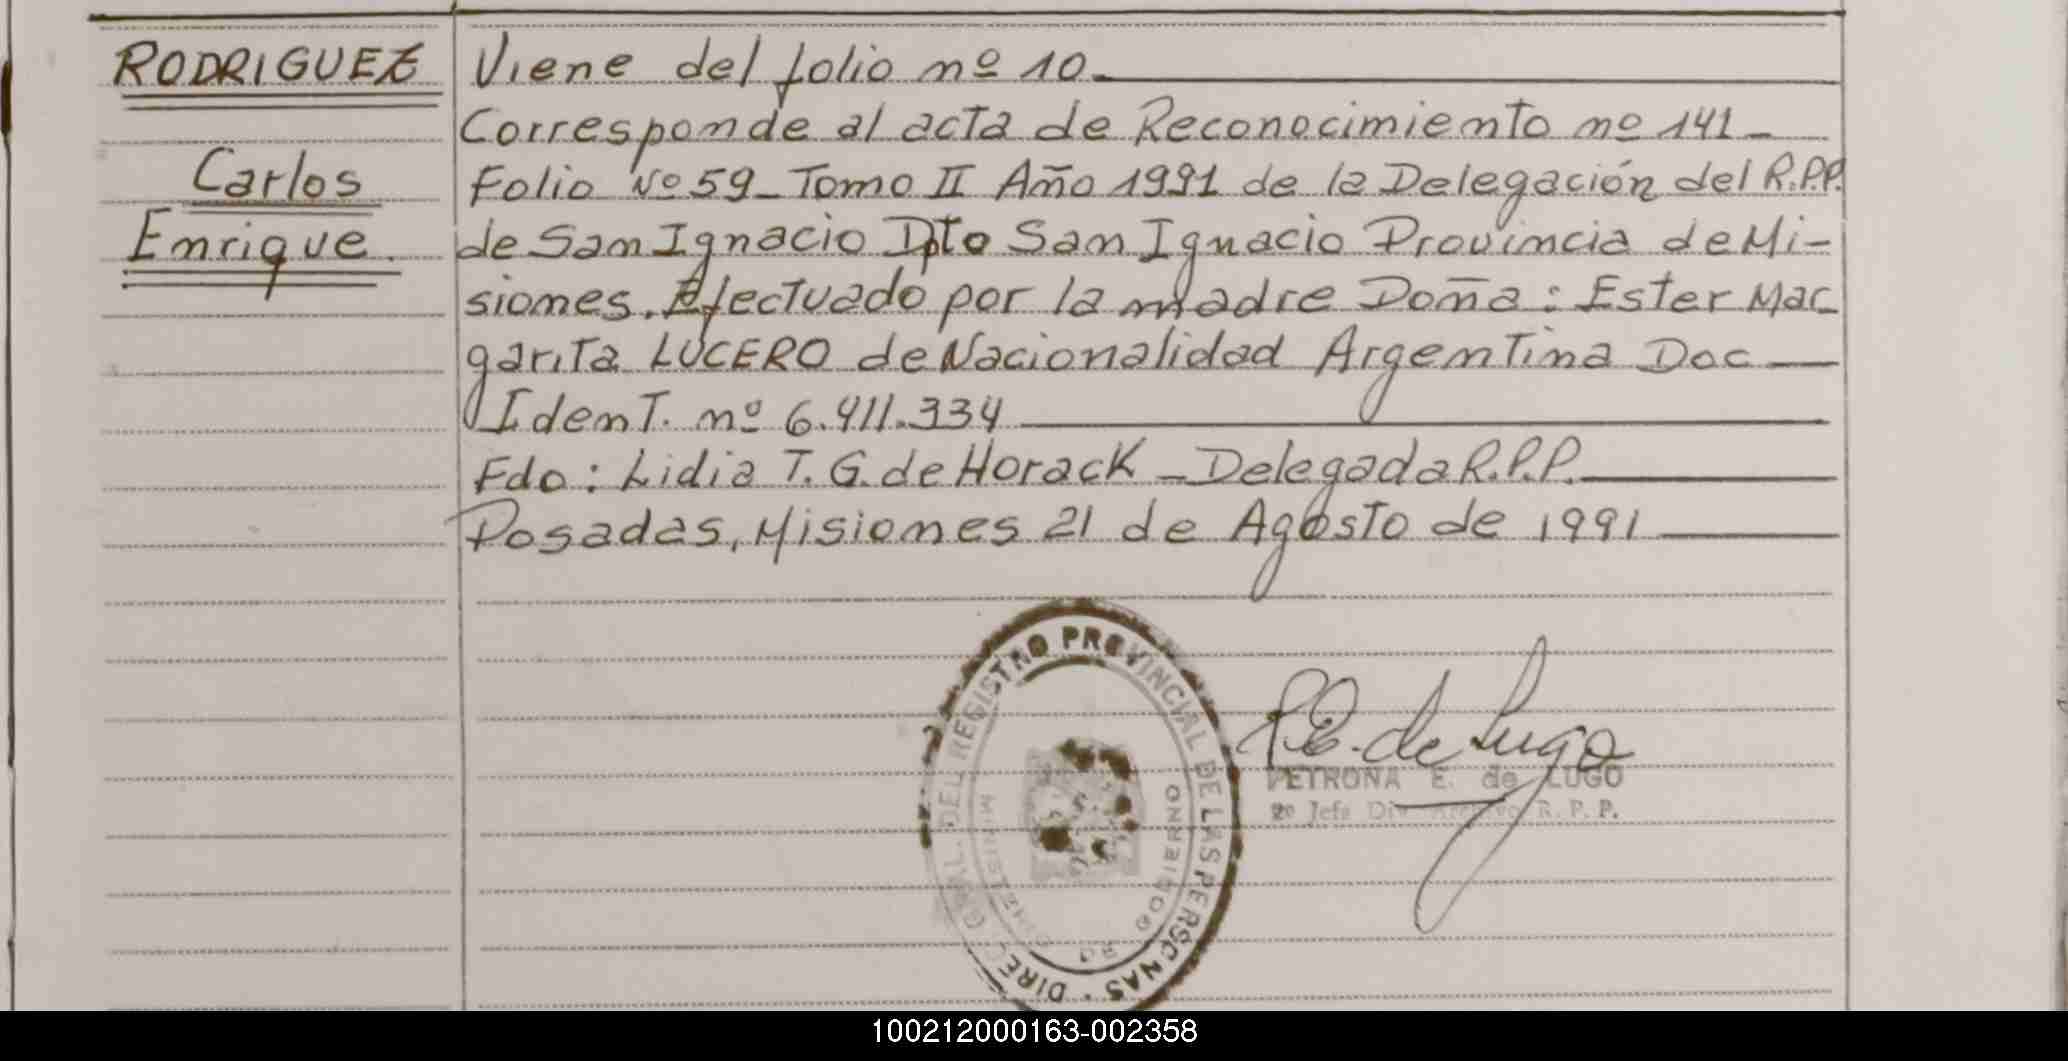 RODRIGUEZ
Carlos
Enrique.
Viene del folio nº 10.
Corresponde al acta de Reconocimiento nº 141
Folio Nº 59 Tomo II Año 1991 de la Delegación del R.P.P.
de San Ignacio Dpto San Ignacio Provincia de Mi-
siones. Efectuado por la madre Doña: Ester Mar
garita LUCERO de Nacionalidad Argentina Doc
Ident. nº 6.411.334
Fdo: Lidia T. G. de Horack - Delegada R.P.P.
Posadas, Misiones 21 de Agosto de 1991
DIREC GRAL. DEL REGISTRO PROVINCIAL DE LAS PERSONAS
GOBIERNO
P.E. de Lugo
PETRONA E. de LUGO
2º Jefe Div. Archivo R. P. P.
100212000163-002358